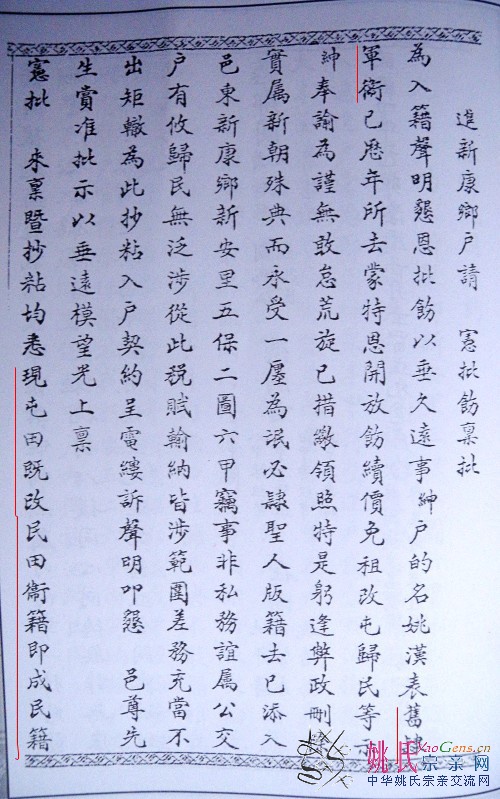 進新康鄉戶請　憲批飭稟批
為入籍聲明懇恩批飭以垂久遠事紳戶的名姚漢表舊隸
軍衛已歷年所去蒙特恩開放飭續價免租改屯歸民等示
紳奉諭為謹無敢怠荒旋已措繳領照特是躬逢弊政刪
實属新朝殊典而永受一廛為氓必肄聖人版籍去已添入
邑東新康鄉新安里五保二圖六甲竊事非私務誼属公交
户有攸歸民無泛涉從此税賦輸納皆涉範圍差務充當不
出矩轍為此抄粘入戶契約呈電縷訴聲明叩懇　邑尊先
生賞准批示以垂遠模望光上稟
憲批　來稟暨抄粘均悉現屯田既改民田衞籍即成民籍
姚氏宗亲网
YaoGens.cn
中华姚氏宗亲交流网